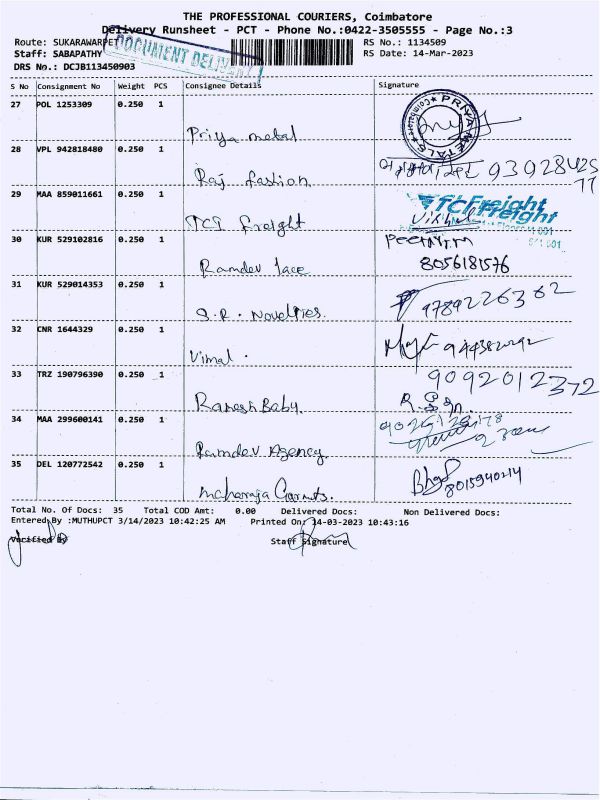 THE PROFESSIONAL COURIERS, Coimbatore
Delivery Runsheet - PCT - Phone No.:0422-3505555 - Page No.:3
Route: SUKARAWARPET
RS No.: 1134509
Staff: SABAPATHY
RS Date: 14-Mar-2023
DRS No.: DCJB113450903
DOCUMENT DELIV
S No Consignment No Weight PCS Consignee Details Signature
27 POL 1253309 0.250 1
Priya metal
PRIYA METALS Coimbatore
28 VPL 942818480 0.250 1
Raj fashion
29 MAA 859011661 0.250 1
TCI freight
TCI Freight
30 KUR 529102816 0.250 1
Ramdev lace
8056181576
31 KUR 529014353 0.250 1
S.R. Novelties.
9789226362
32 CNR 1644329 0.250 1
Vimal.
33 TRZ 190796390 0.250 1
9092012372
Ramesh Baby.
34 MAA 299600141 0.250 1
Ramdev Agency
35 DEL 120772542 0.250 1
Maharaja Garments.
Total No. Of Docs: 35 Total COD Amt: 0.00 Delivered Docs: Non Delivered Docs:
Entered By :MUTHUPCT 3/14/2023 10:42:25 AM Printed On: 14-03-2023 10:43:16
Verified By Staff Signature